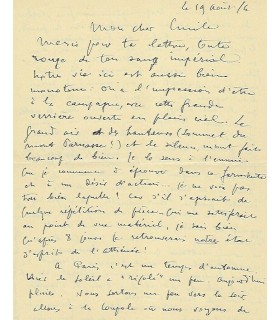 le 19 août /6
Mon cher Emile
Merci pour ta lettre, toute
rouge de ton sang impérial
Notre vie ici est aussi bien
monotone: on a l'impression d'être
à la campagne, avec cette grande
verrière ouverte en plein ciel. Le
grand air et des hauteurs (sommet du
mont Parnasse!) et le silence, m'ont fait
beaucoup de bien. Je le sens à l'ennui
que je commence à éprouver dans ce
et à un désir d'action. Je ne vois pas
très bien laquelle! car s'il s'agissait de
quelque répétition de pièce qui me satisferait
au point de vue matériel, je sais bien
qu'après 8 jours je retrouverais notre état
d'esprit de l'Athénée!
A Paris, c'est un temps d'automne
le soleil a "rigolé" un peu. Aujourd'hui
pluie. Nous sortons un peu vers le soir
allons à la Coupole où nous voyons de